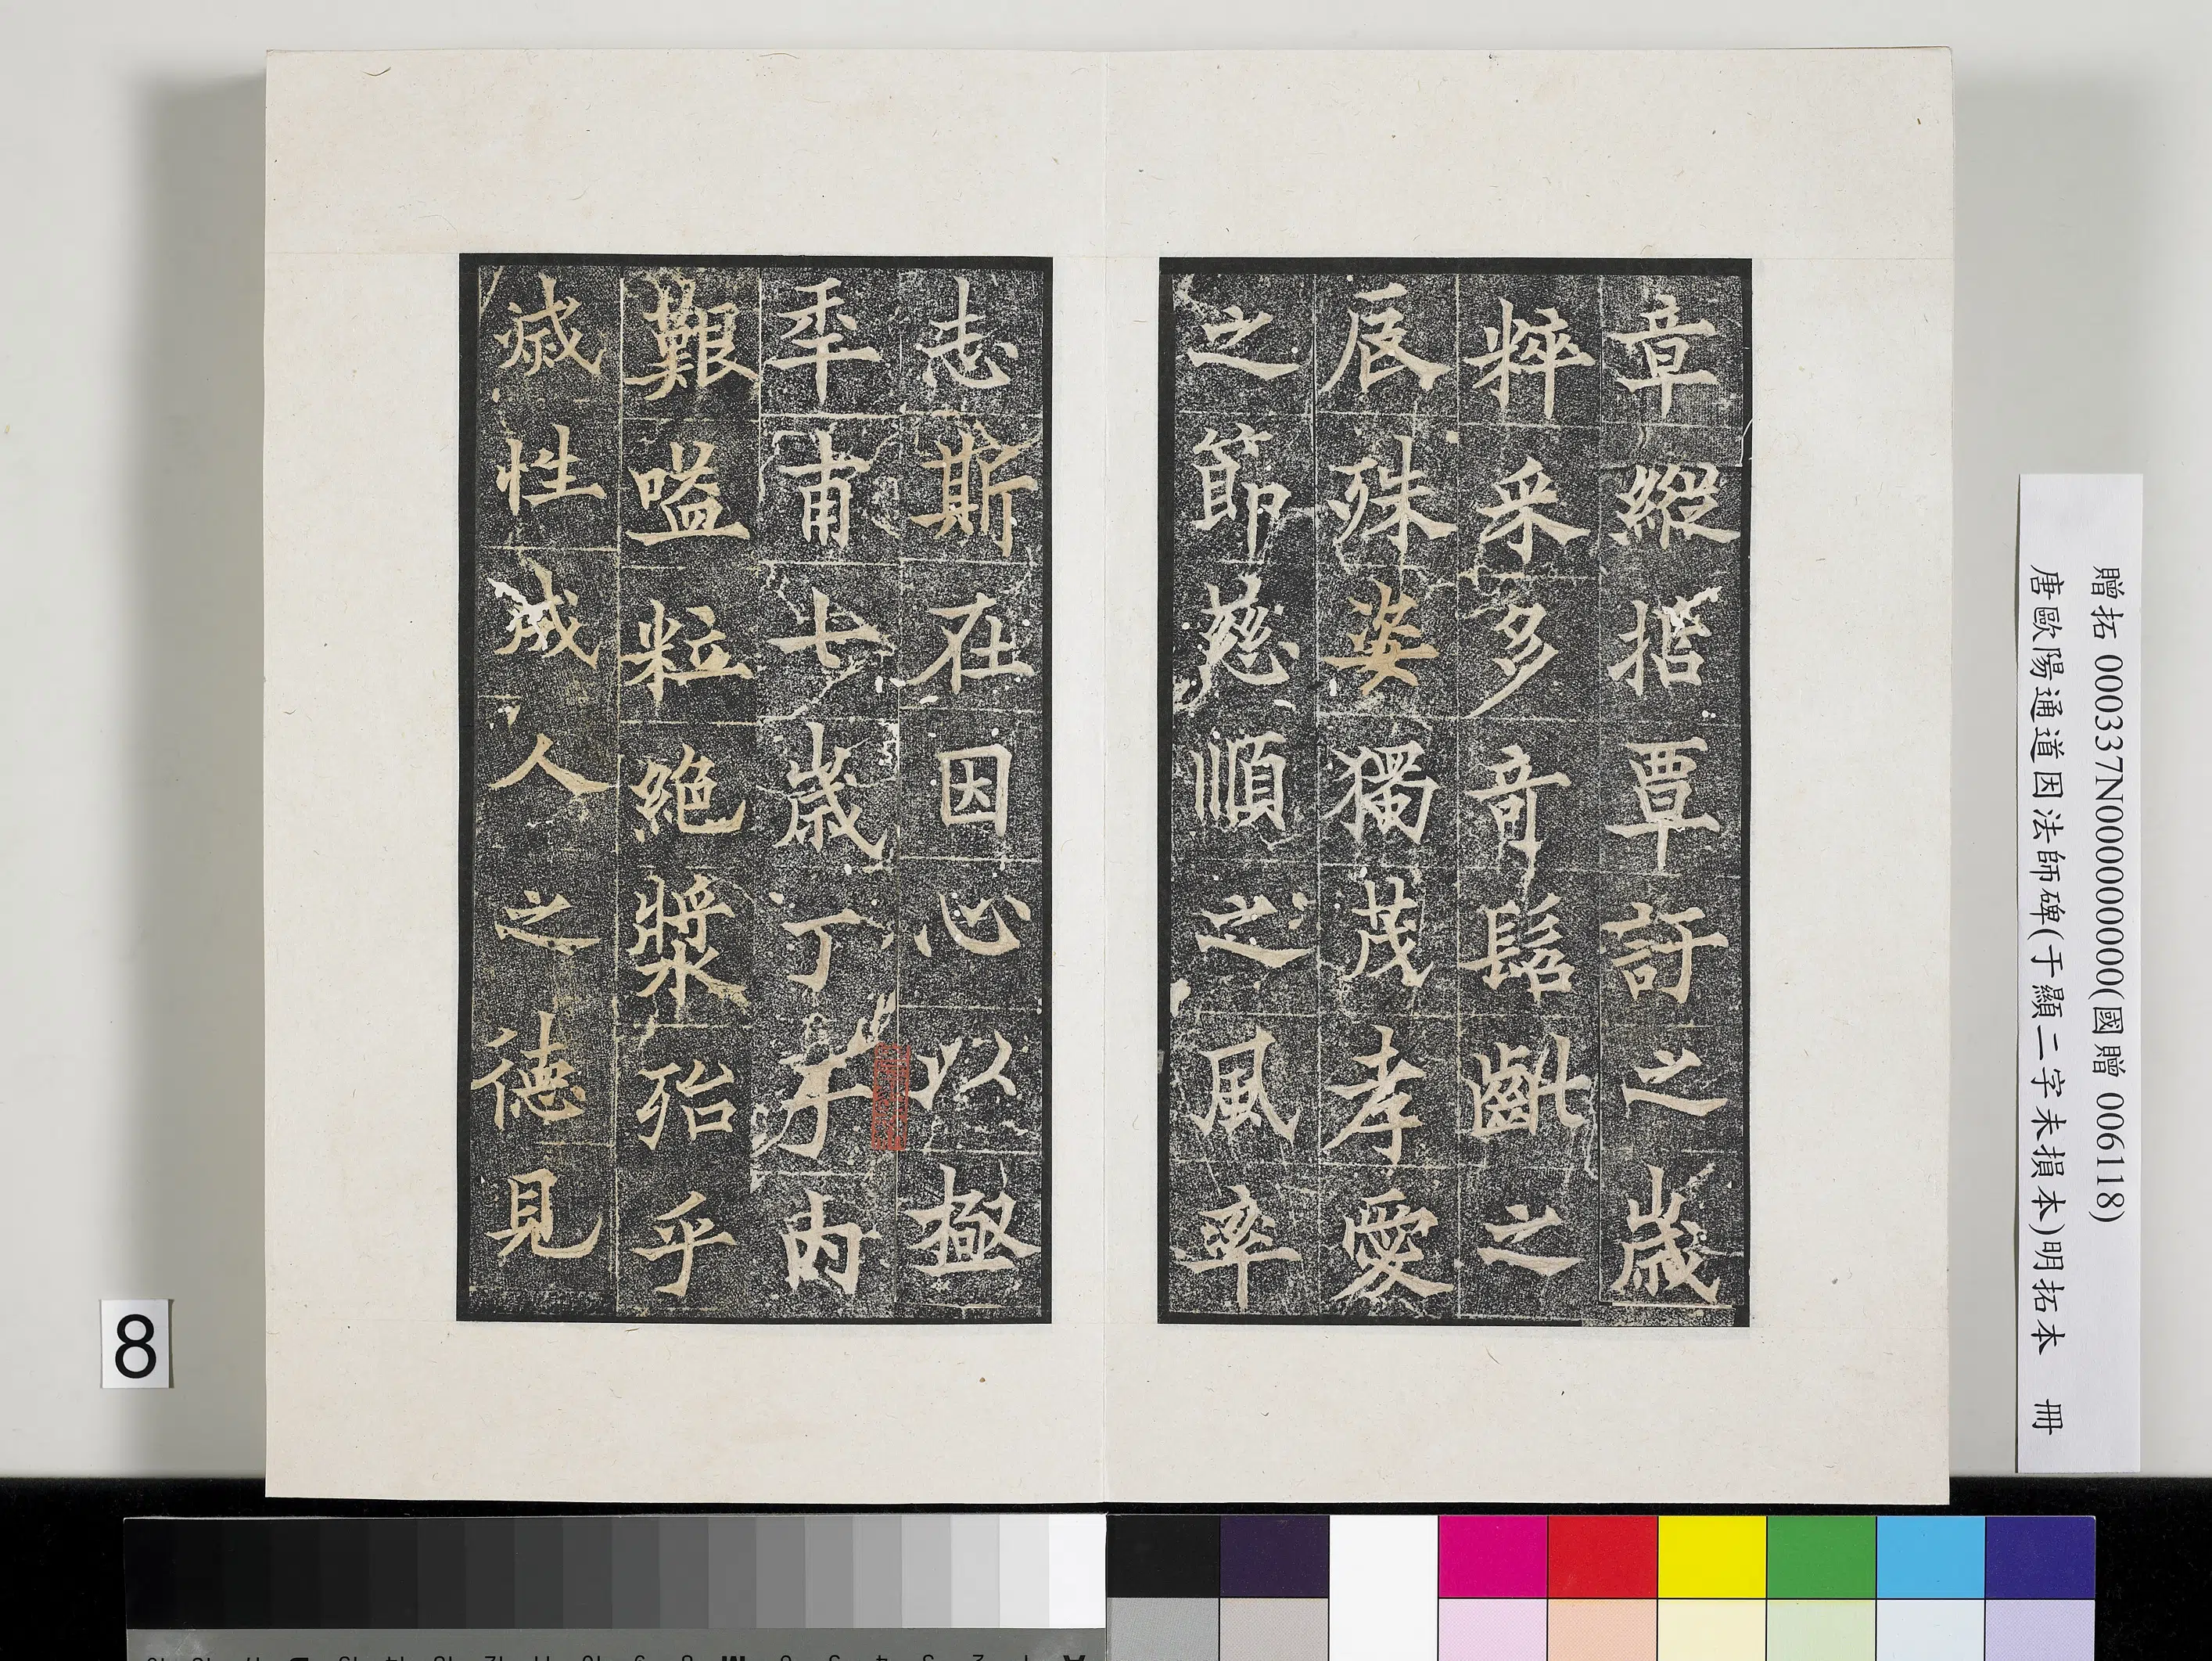 章縱指覃訏之歲
粹采多奇髫齓之
辰殊姿獨茂孝愛
之節慈順之風率
志斯在因心以極
秊甫七歲丁于內
艱嗌粒絕漿殆乎
滅性成人之德見
贈拓 000337N000000000(國贈 006118)
唐歐陽通道因法師碑(于顯二字未損本)明拓本 冊
8